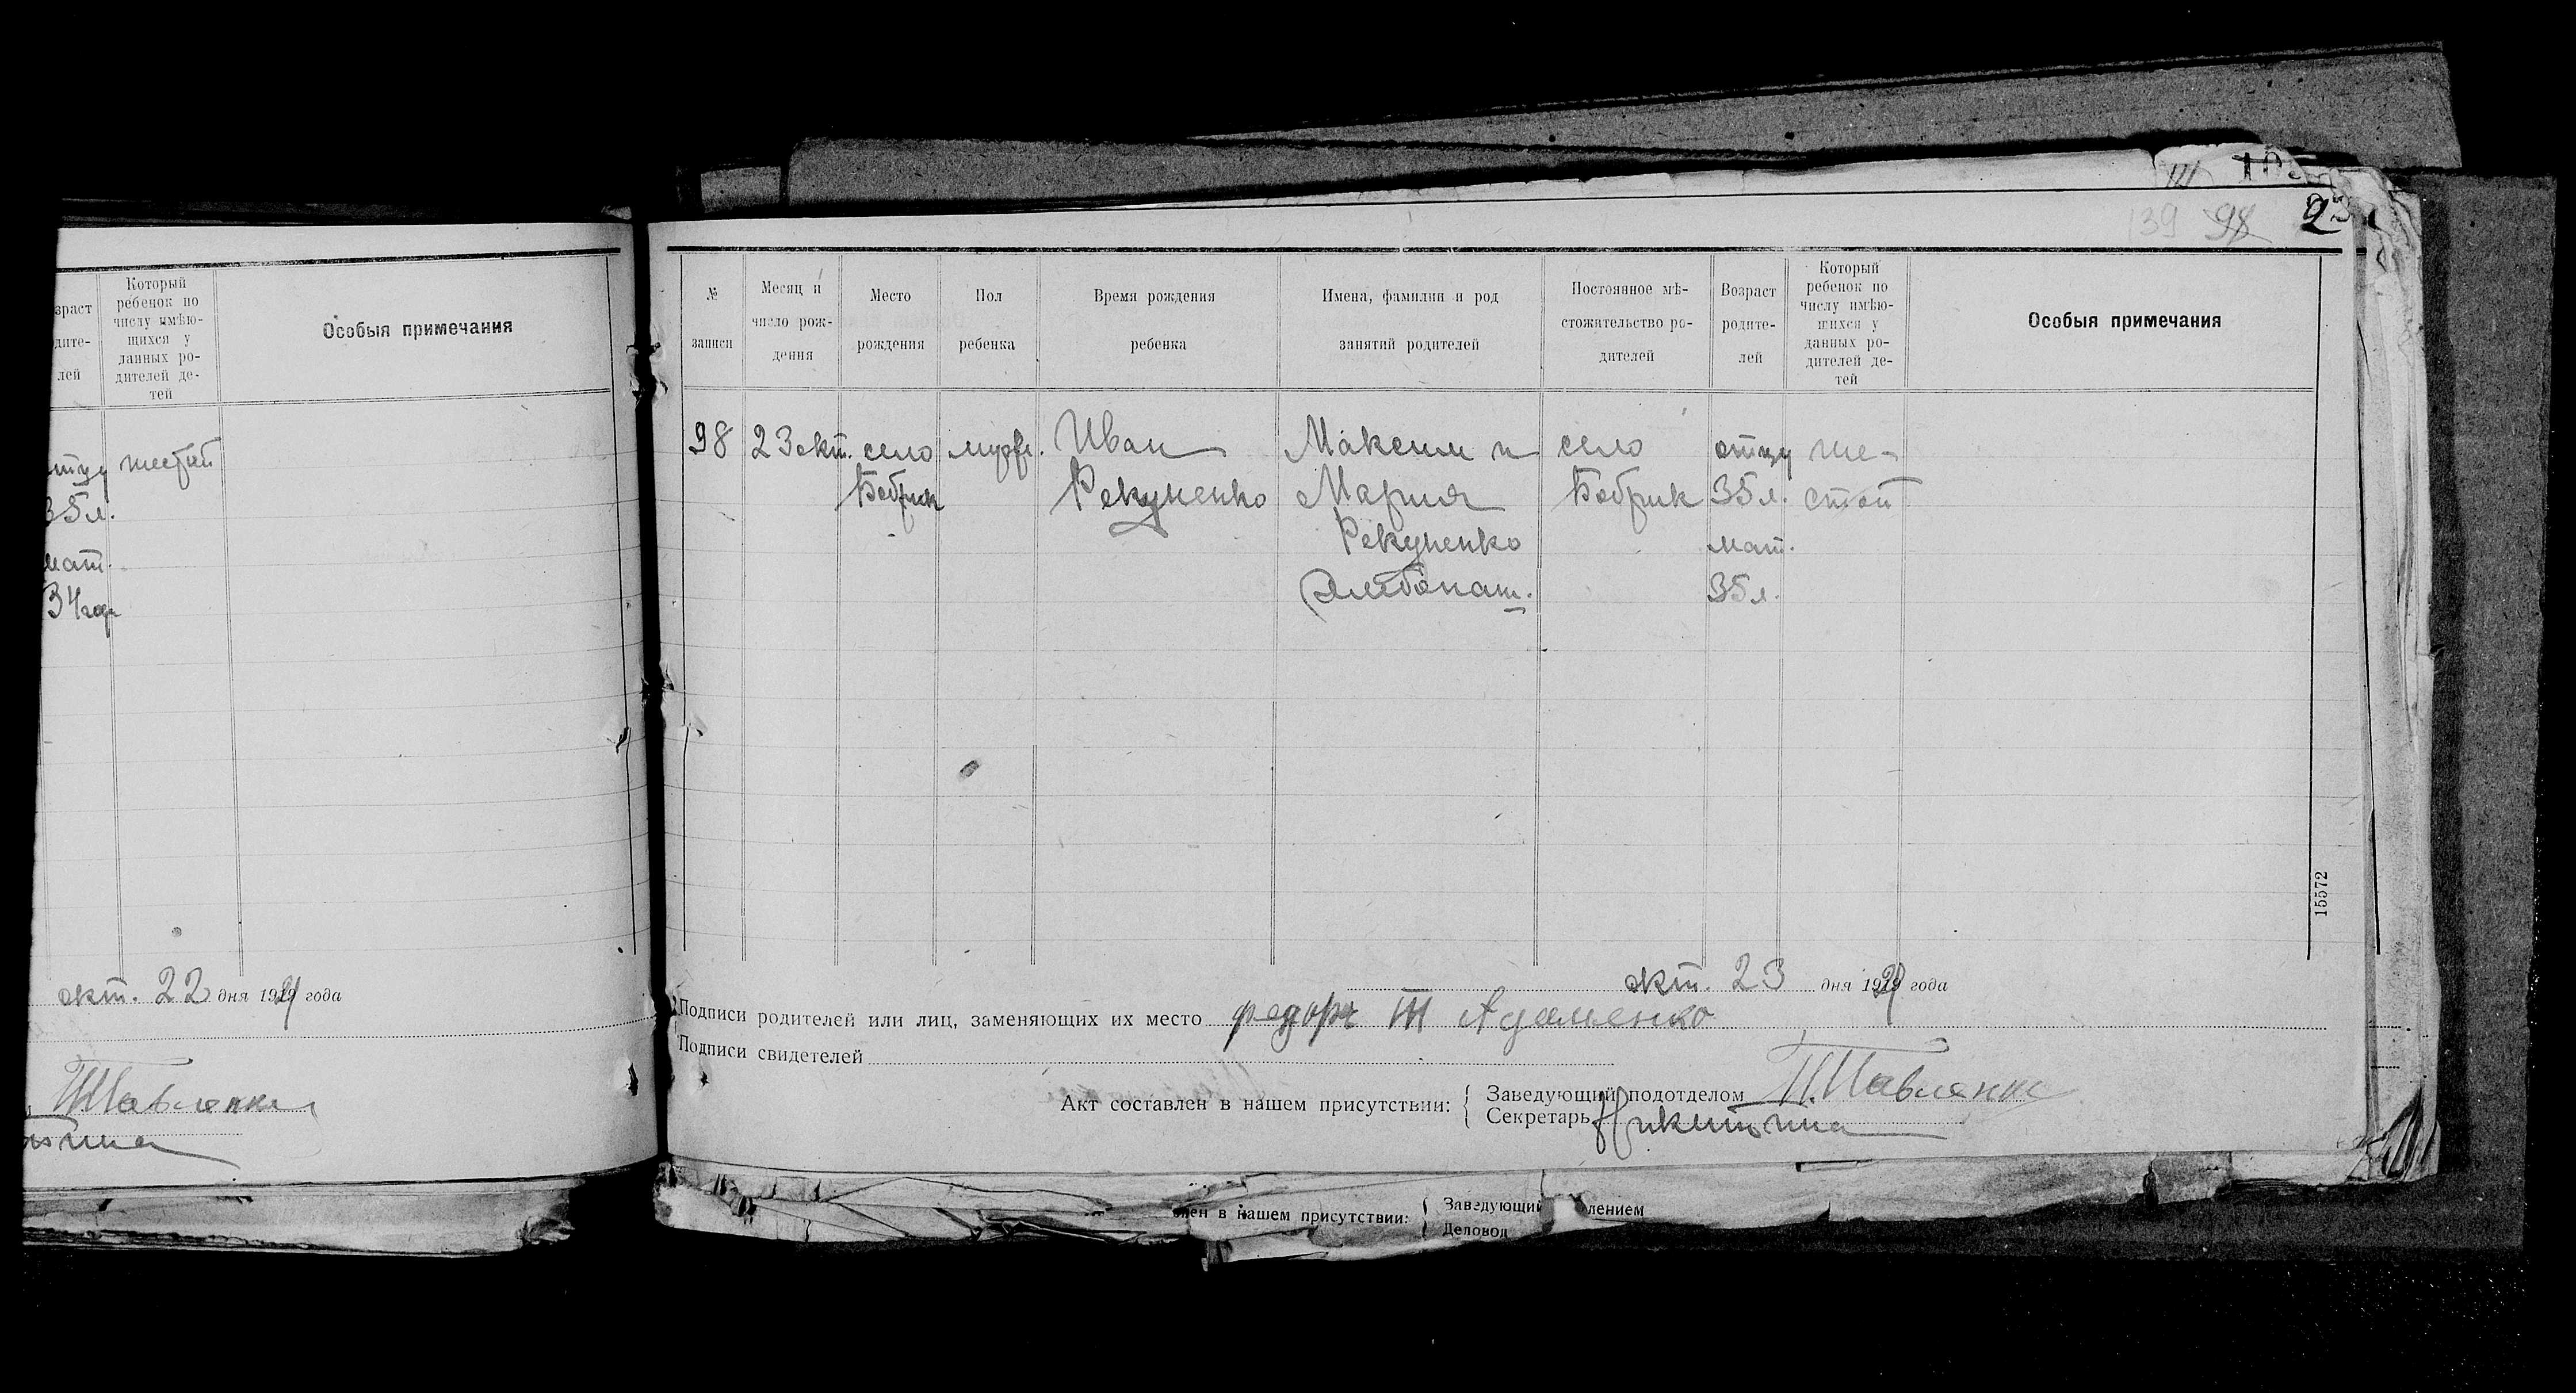 зраст
дите-
лей
Который
ребенок по
числу имѣю-
щихся у
данных ро-
дителей де-
тей
Особыя примечания
отцу шестой
35 л.
мат.
34 год
окт. 22 дня 1921 года
П. Павленко
139 98
№
записи
Месяц и
число рож-
дения
Место
рождения
Пол
ребенка
Время рождения
ребенка
Имена, фамилии и род
занятий родителей
Постоянное мѣ-
стожительство ро-
дителей
Возраст
родите-
лей
Который
ребенок по
числу имѣю-
щихся у
данных ро-
дителей де-
тей
Особыя примечания
98 23 окт. село мужс. Иван Максим и село отцу ше-
Бобрик Рекуненко Мария Бобрик 35 л. стой
Рекуненко мат.
хлебопаш. 35 л.
15572
окт. 23 дня 1921 года
Подписи родителей или лиц, заменяющих их место федоръ Адаменко
Подписи свидетелей
Акт составлен в нашем присутствии: Заведующий подотделом П. Павленко
Секретарь Никитина
влен в нашем присутствии: Заведующий лением
Деловод